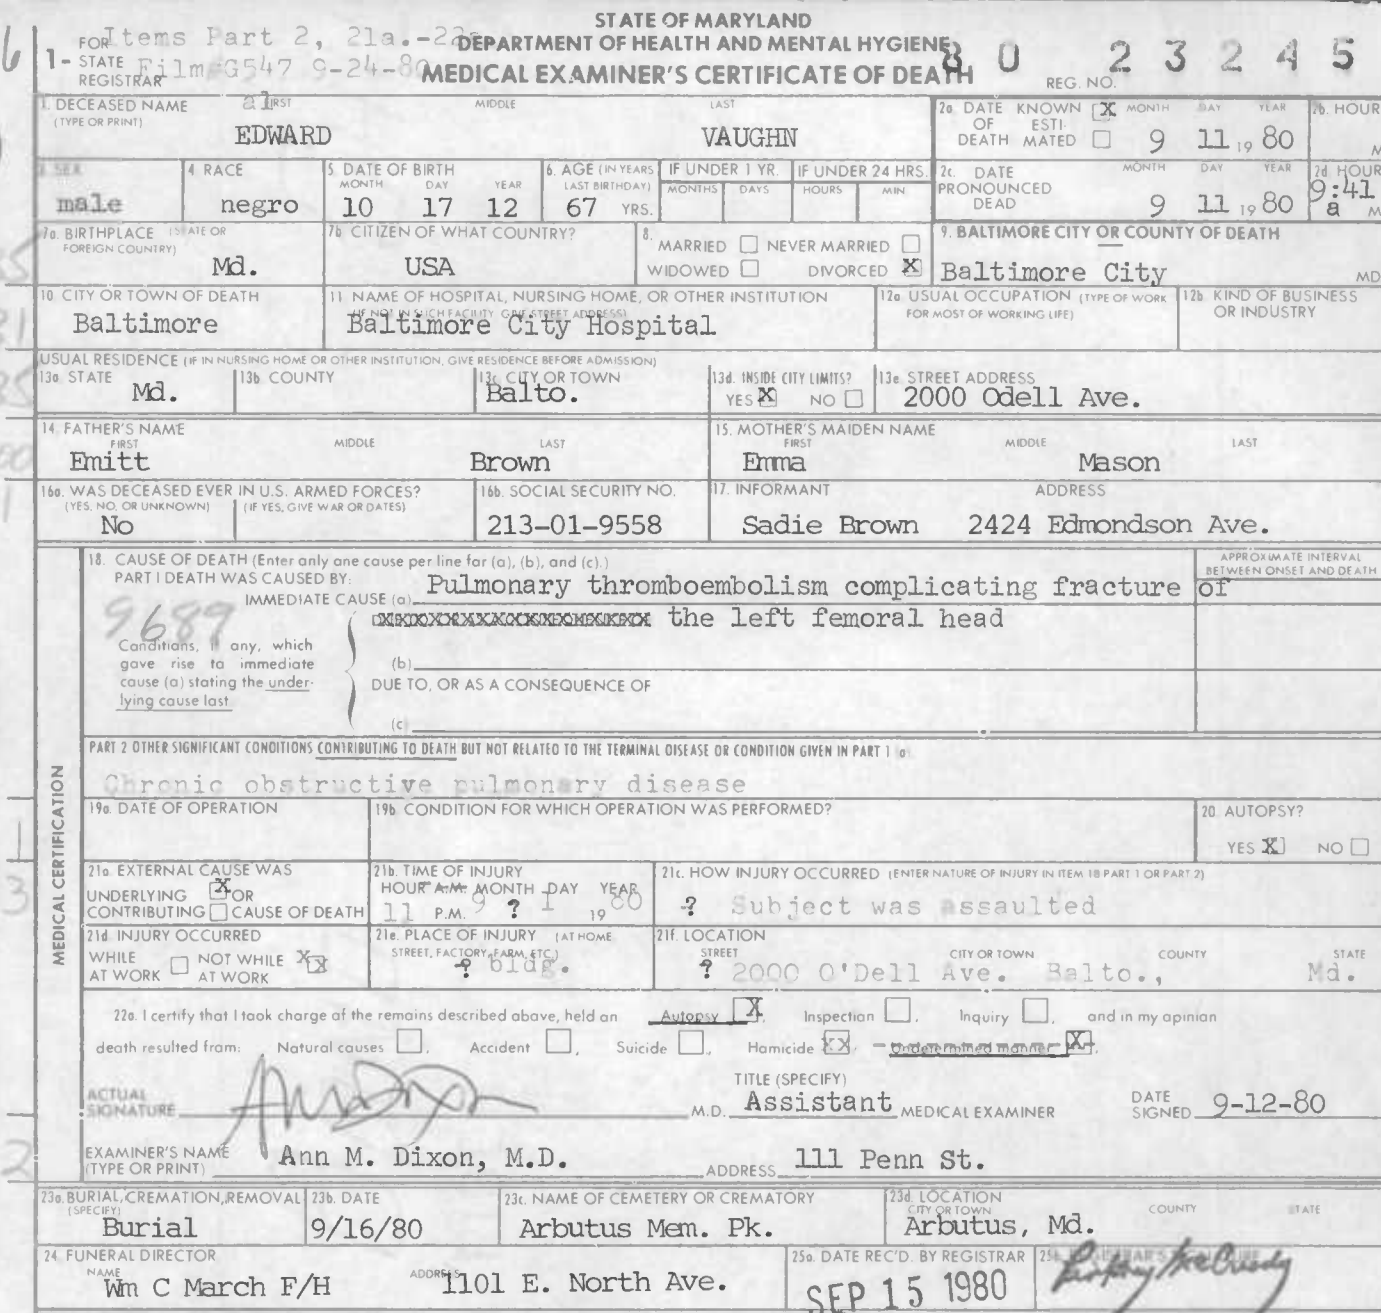 STATE OF MARYLAND
DEPARTMENT OF HEALTH AND MENTAL HYGIENE
MEDICAL EXAMINER'S CERTIFICATE OF DEATH
1- FOR STATE REGISTRAR
Items Part 2, 21a.-22a
Film G547 9-24-80
al
REG. NO. 80 23245
1. DECEASED NAME (TYPE OR PRINT) FIRST MIDDLE LAST
EDWARD VAUGHN
2a. DATE OF DEATH KNOWN X ESTIMATED MONTH DAY YEAR
9 11 1980
2b. HOUR M
3. SEX
male
4. RACE
negro
5. DATE OF BIRTH MONTH DAY YEAR
10 17 12
6. AGE (IN YEARS LAST BIRTHDAY)
67 YRS.
IF UNDER 1 YR. MONTHS DAYS
IF UNDER 24 HRS. HOURS MIN
2c. DATE PRONOUNCED DEAD MONTH DAY YEAR
9 11 1980
2d. HOUR
9:41 a M
7a. BIRTHPLACE (STATE OR FOREIGN COUNTRY)
Md.
7b. CITIZEN OF WHAT COUNTRY?
USA
8. MARRIED NEVER MARRIED
WIDOWED DIVORCED X
9. BALTIMORE CITY OR COUNTY OF DEATH
Baltimore City MD
10. CITY OR TOWN OF DEATH
Baltimore
11. NAME OF HOSPITAL, NURSING HOME, OR OTHER INSTITUTION
(IF NOT IN SUCH FACILITY GIVE STREET ADDRESS)
Baltimore City Hospital
12a. USUAL OCCUPATION (TYPE OF WORK FOR MOST OF WORKING LIFE)
12b. KIND OF BUSINESS OR INDUSTRY
USUAL RESIDENCE (IF IN NURSING HOME OR OTHER INSTITUTION, GIVE RESIDENCE BEFORE ADMISSION)
13a. STATE
Md.
13b. COUNTY
13c. CITY OR TOWN
Balto.
13d. INSIDE CITY LIMITS?
YES X NO
13e. STREET ADDRESS
2000 Odell Ave.
14. FATHER'S NAME FIRST MIDDLE LAST
Emitt Brown
15. MOTHER'S MAIDEN NAME FIRST MIDDLE LAST
Emma Mason
16a. WAS DECEASED EVER IN U.S. ARMED FORCES?
(YES, NO, OR UNKNOWN) (IF YES, GIVE WAR OR DATES)
No
16b. SOCIAL SECURITY NO.
213-01-9558
17. INFORMANT ADDRESS
Sadie Brown 2424 Edmondson Ave.
MEDICAL CERTIFICATION
18. CAUSE OF DEATH (Enter only one cause per line for (a), (b), and (c).)
PART I DEATH WAS CAUSED BY:
IMMEDIATE CAUSE (a) Pulmonary thromboembolism complicating fracture of
the left femoral head
APPROXIMATE INTERVAL BETWEEN ONSET AND DEATH
9689
Conditions, if any, which gave rise to immediate cause (a) stating the underlying cause last
(b)
DUE TO, OR AS A CONSEQUENCE OF
(c)
PART 2 OTHER SIGNIFICANT CONDITIONS CONTRIBUTING TO DEATH BUT NOT RELATED TO THE TERMINAL DISEASE OR CONDITION GIVEN IN PART 1 a
Chronic obstructive pulmonary disease
19a. DATE OF OPERATION
19b. CONDITION FOR WHICH OPERATION WAS PERFORMED?
20. AUTOPSY?
YES X NO
21a. EXTERNAL CAUSE WAS
UNDERLYING X OR
CONTRIBUTING CAUSE OF DEATH
21b. TIME OF INJURY
HOUR A.M. MONTH DAY YEAR
11 P.M. 9 ? 1 1980
21c. HOW INJURY OCCURRED (ENTER NATURE OF INJURY IN ITEM 18 PART 1 OR PART 2)
? Subject was assaulted
21d. INJURY OCCURRED
WHILE AT WORK NOT WHILE AT WORK X X
21e. PLACE OF INJURY (AT HOME STREET, FACTORY, FARM, ETC.)
? bldg.
21f. LOCATION
STREET CITY OR TOWN COUNTY STATE
? 2000 O'Dell Ave. Balto., Md.
22a. I certify that I took charge of the remains described above, held an Autopsy X, Inspection, Inquiry, and in my opinion
death resulted from: Natural causes, Accident, Suicide, Homicide XX. Undetermined manner X.
ACTUAL SIGNATURE
M.D.
TITLE (SPECIFY)
Assistant MEDICAL EXAMINER
DATE SIGNED 9-12-80
EXAMINER'S NAME (TYPE OR PRINT) Ann M. Dixon, M.D.
ADDRESS 111 Penn St.
23a. BURIAL, CREMATION, REMOVAL (SPECIFY)
Burial
23b. DATE
9/16/80
23c. NAME OF CEMETERY OR CREMATORY
Arbutus Mem. Pk.
23d. LOCATION
CITY OR TOWN COUNTY STATE
Arbutus, Md.
24. FUNERAL DIRECTOR
NAME Wm C March F/H
ADDRESS 1101 E. North Ave.
25a. DATE REC'D. BY REGISTRAR
SEP 15 1980